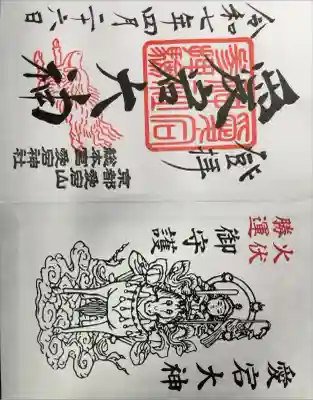 登拝
愛宕大神
令和七年四月二十六日
京都愛宕山
総本宮 愛宕神社
火伏
勝運
御守護
愛宕大神